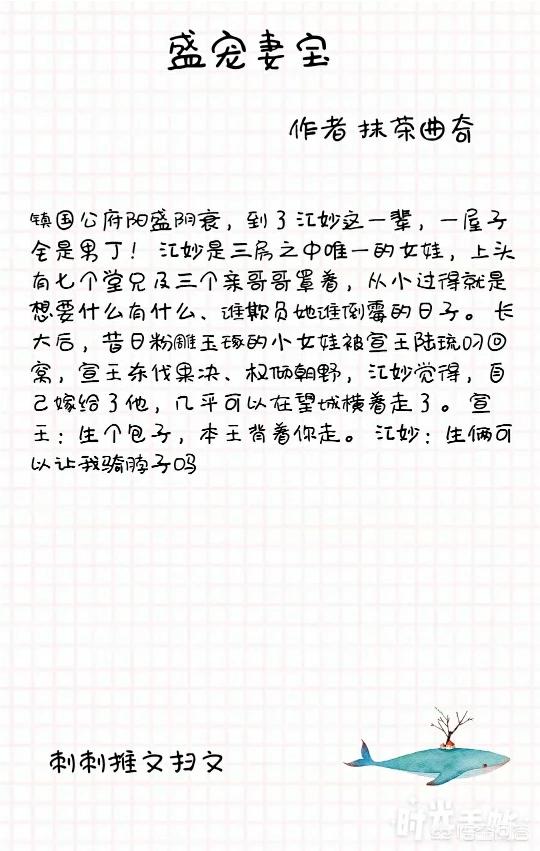 盛宠妻宝
作者 抹茶曲奇
镇国公府阳盛阴衰，到了江妙这一辈，一屋子
全是男丁！江妙是三房之中唯一的女娃，上头
有七个堂兄及三个亲哥哥罩着，从小过得就是
想要什么有什么、谁欺负她谁倒霉的日子。长
大后，昔日粉雕玉琢的小女娃被宣王陆琉叼回
窝，宣王杀伐果决、权倾朝野，江妙觉得，自
己嫁给了他，几乎可以在望城横着走了。宣
王：生个包子，本王背着你走。江妙：生俩可
以让我骑脖子吗
刺刺推文扫文
时光手帐
悟空问答